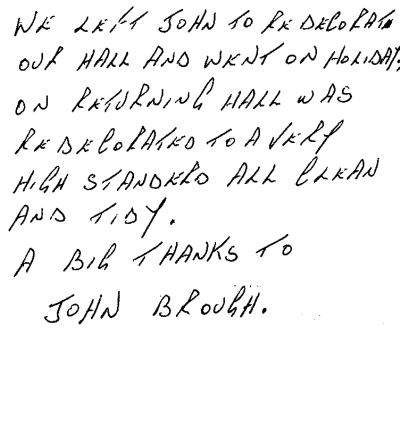 WE LEFT JOHN TO REDECORATE
OUR HALL AND WENT ON HOLIDAY,
ON RETURNING HALL WAS
REDECORATED TO A VERY
HIGH STANDERD ALL CLEAN
AND TIDY.
A BIG THANKS TO
JOHN BROUGH.